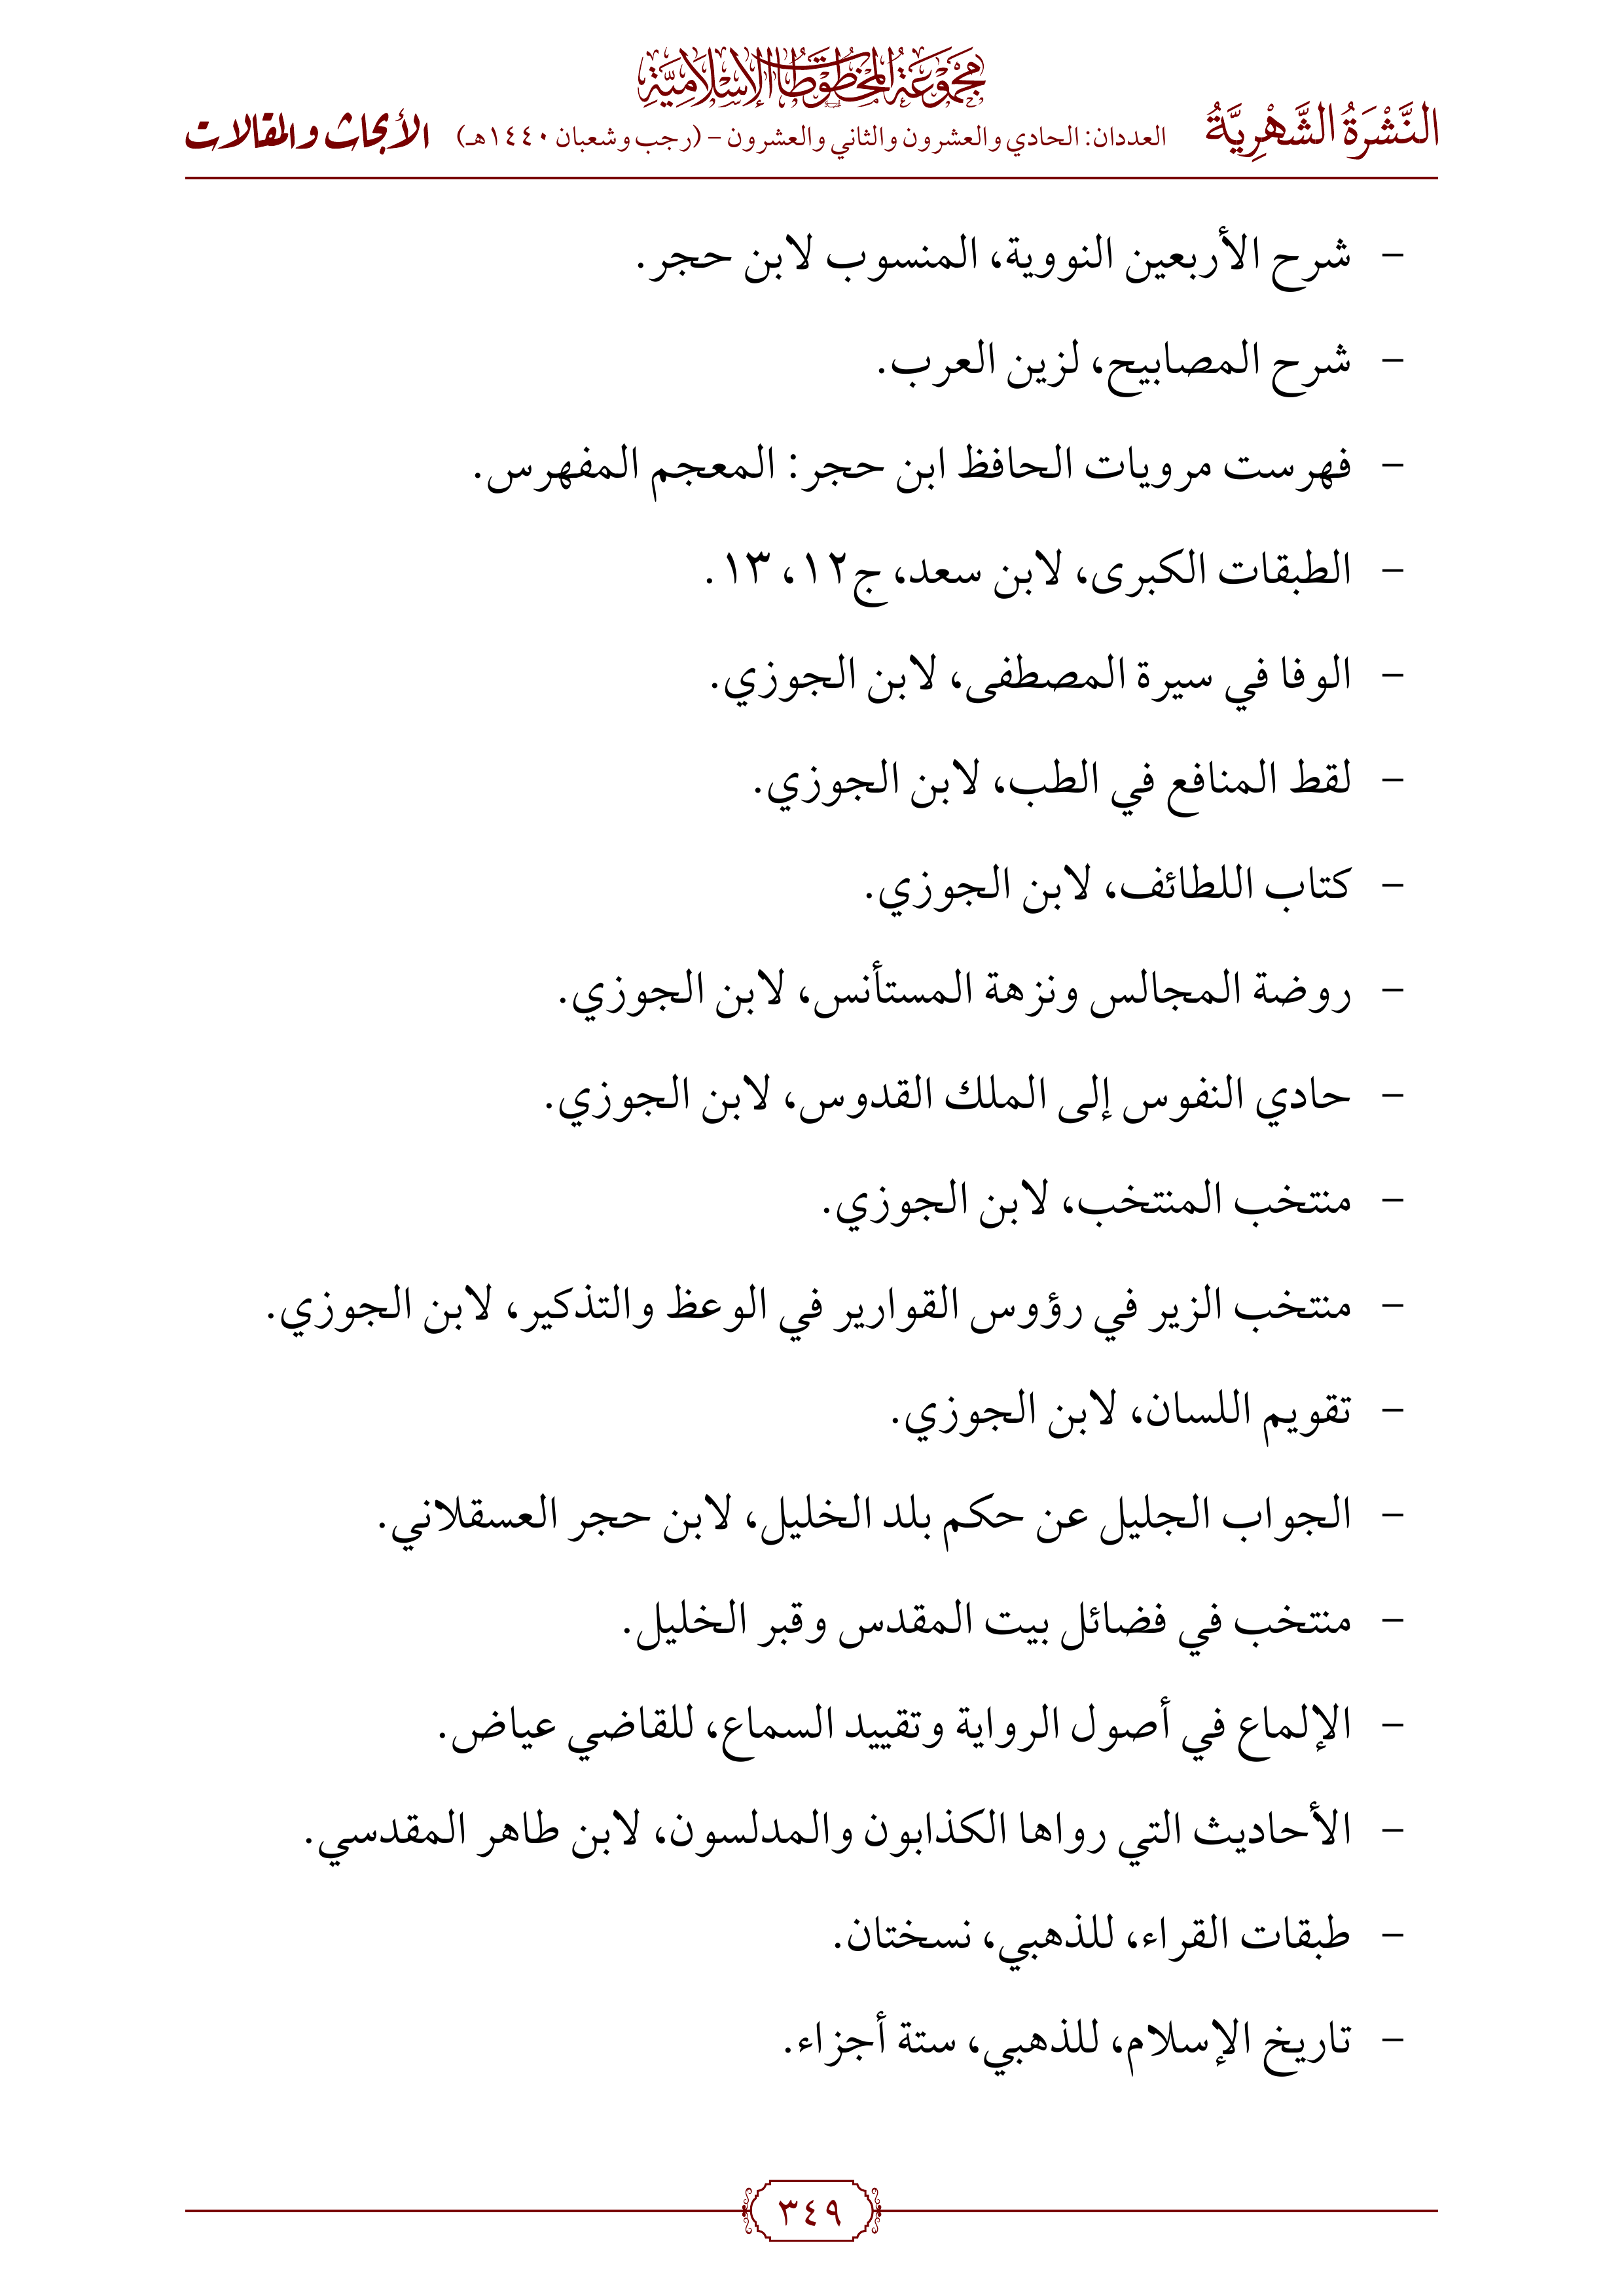 مجموعة المخطوطات الإسلامية
النَّشْرَةُ الشَّهْرِيَّةُ العددان: الحادي والعشرون والثاني والعشرون – (رجب وشعبان ١٤٤٠هـ) الأبحاث والمقالات
– شرح الأربعين النووية، المنسوب لابن حجر.
– شرح المصابيح، لزين العرب.
– فهرست مرويات الحافظ ابن حجر: المعجم المفهرس.
– الطبقات الكبرى، لابن سعد، ج١٢، ١٣.
– الوفا في سيرة المصطفى، لابن الجوزي.
– لقط المنافع في الطب، لابن الجوزي.
– كتاب اللطائف، لابن الجوزي.
– روضة المجالس ونزهة المستأنس، لابن الجوزي.
– حادي النفوس إلى الملك القدوس، لابن الجوزي.
– منتخب المنتخب، لابن الجوزي.
– منتخب الزير في رؤوس القوارير في الوعظ والتذكير، لابن الجوزي.
– تقويم اللسان، لابن الجوزي.
– الجواب الجليل عن حكم بلد الخليل، لابن حجر العسقلاني.
– منتخب في فضائل بيت المقدس وقبر الخليل.
– الإلماع في أصول الرواية وتقييد السماع، للقاضي عياض.
– الأحاديث التي رواها الكذابون والمدلسون، لابن طاهر المقدسي.
– طبقات القراء، للذهبي، نسختان.
– تاريخ الإسلام، للذهبي، ستة أجزاء.
٣٤٩